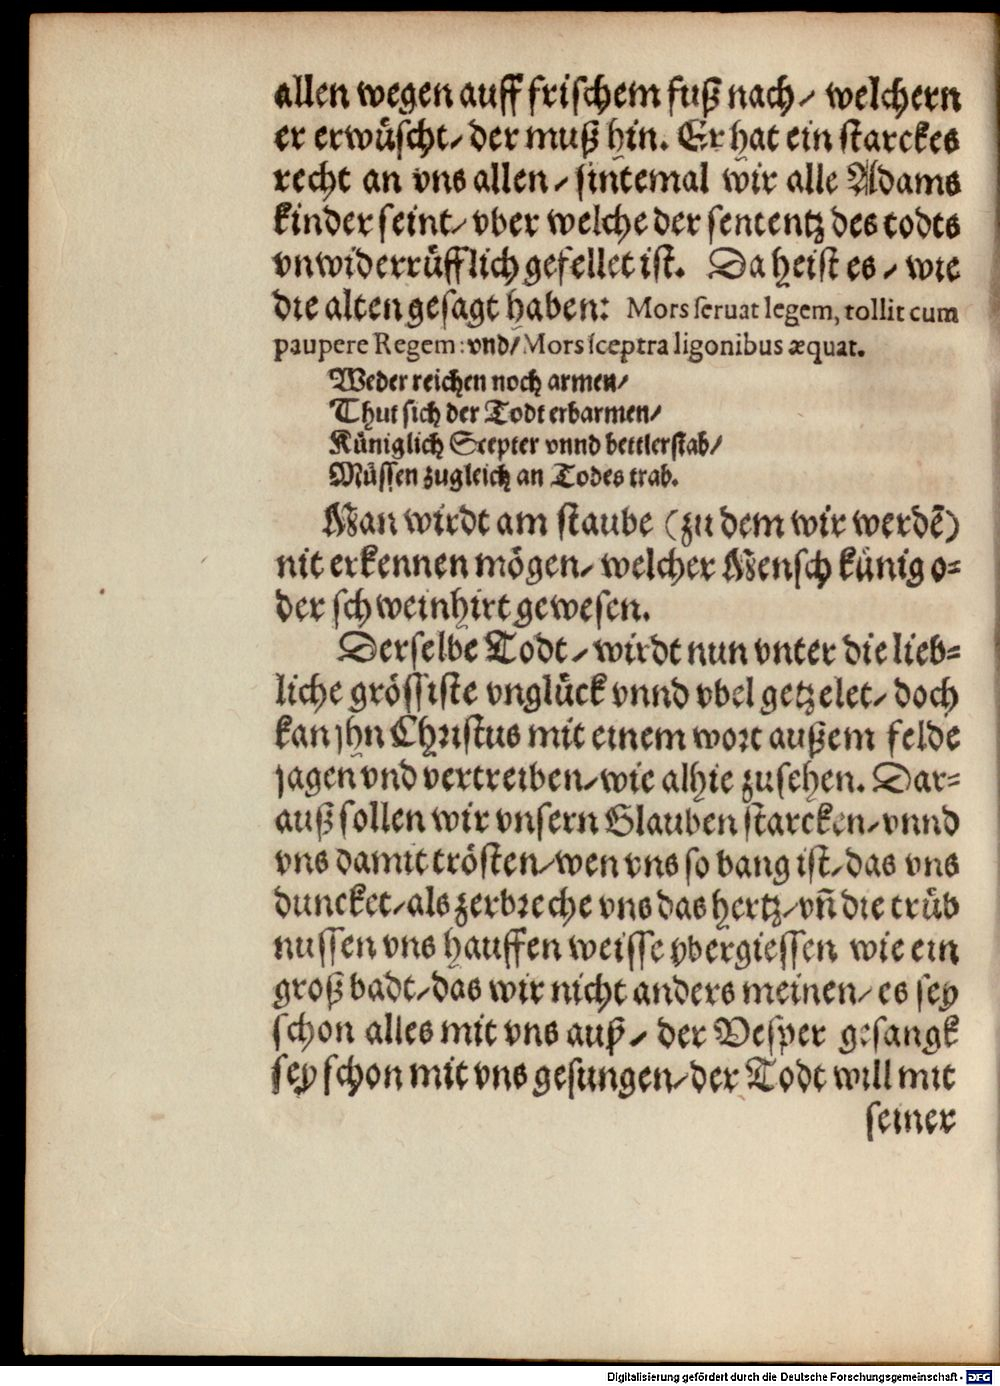 allen wegen auff frischem fuß nach/ welchern
er erwüscht/ der muß hin. Er hat ein starckes
recht an vns allen/ sintemal wir alle Adams
kinder seint/ vber welche der sententz des todts
vnwiderrüfflich gefellet ist. Da heist es/ wie
die alten gesagt haben: Mors seruat legem, tollit cum
paupere Regem: vnd/ Mors sceptra ligonibus æquat.
Weder reichen noch armen/
Thut sich der Todt erbarmen/
Küniglich Scepter vnnd bettlerstab/
Müssen zugleich an Todes trab.
Man wirdt am staube (zu dem wir werdẽ)
nit erkennen mögen/ welcher Mensch künig o=
der schweinhirt gewesen.
Derselbe Todt/ wirdt nun vnter die lieb=
liche grössiste vnglück vnnd vbel getzelet/ doch
kan jhn Christus mit einem wort außem felde
jagen vnd vertreiben/ wie alhie zusehen. Dar=
auß sollen wir vnsern Glauben starcken/ vnnd
vns damit trösten/ wen vns so bang ist/ das vns
duncket/ als zerbreche vns das hertz/ vñ die trüb
nussen vns hauffen weisse vbergiessen wie ein
groß badt/ das wir nicht anders meinen/ es sey
schon alles mit vns auß/ der Vesper gesangk
sey schon mit vns gesungen/ der Todt will mit
seiner
Digitalisierung gefördert durch die Deutsche Forschungsgemeinschaft - DFG